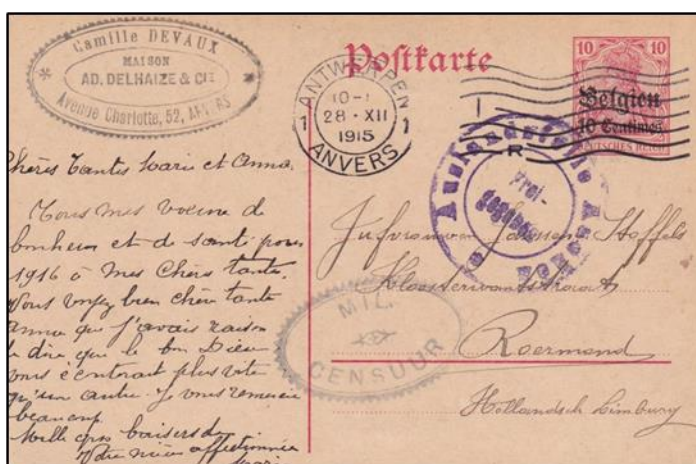 Camille DEVAUX
MAISON
AD. DELHAIZE & CIE
Avenue Charlotte, 52, ANVERS
Postkarte
ANTWERPEN
1 28 · XII 1
1915
ANVERS
10 10
Belgien
10 Centimes
DEUTSCHES REICH
Auslandstelle
Frei-
gegeben
MIL.
CENSUUR
Chères Tantes Marie et Anna.
Tous mes voeux de
bonheur et de santé pour
1916 à mes Chères tantes.
Vous voyez bien chère tante
Anna que j'avais raison
dire que le bon Dieu
vous plus vite
qu'un autre. Je vous remercie
beaucoup
Mille gros baisers de
Votre nièce affectionnée
Jufvrouwen Janssens Stoffels
Roermond
Hollandsch Limburg